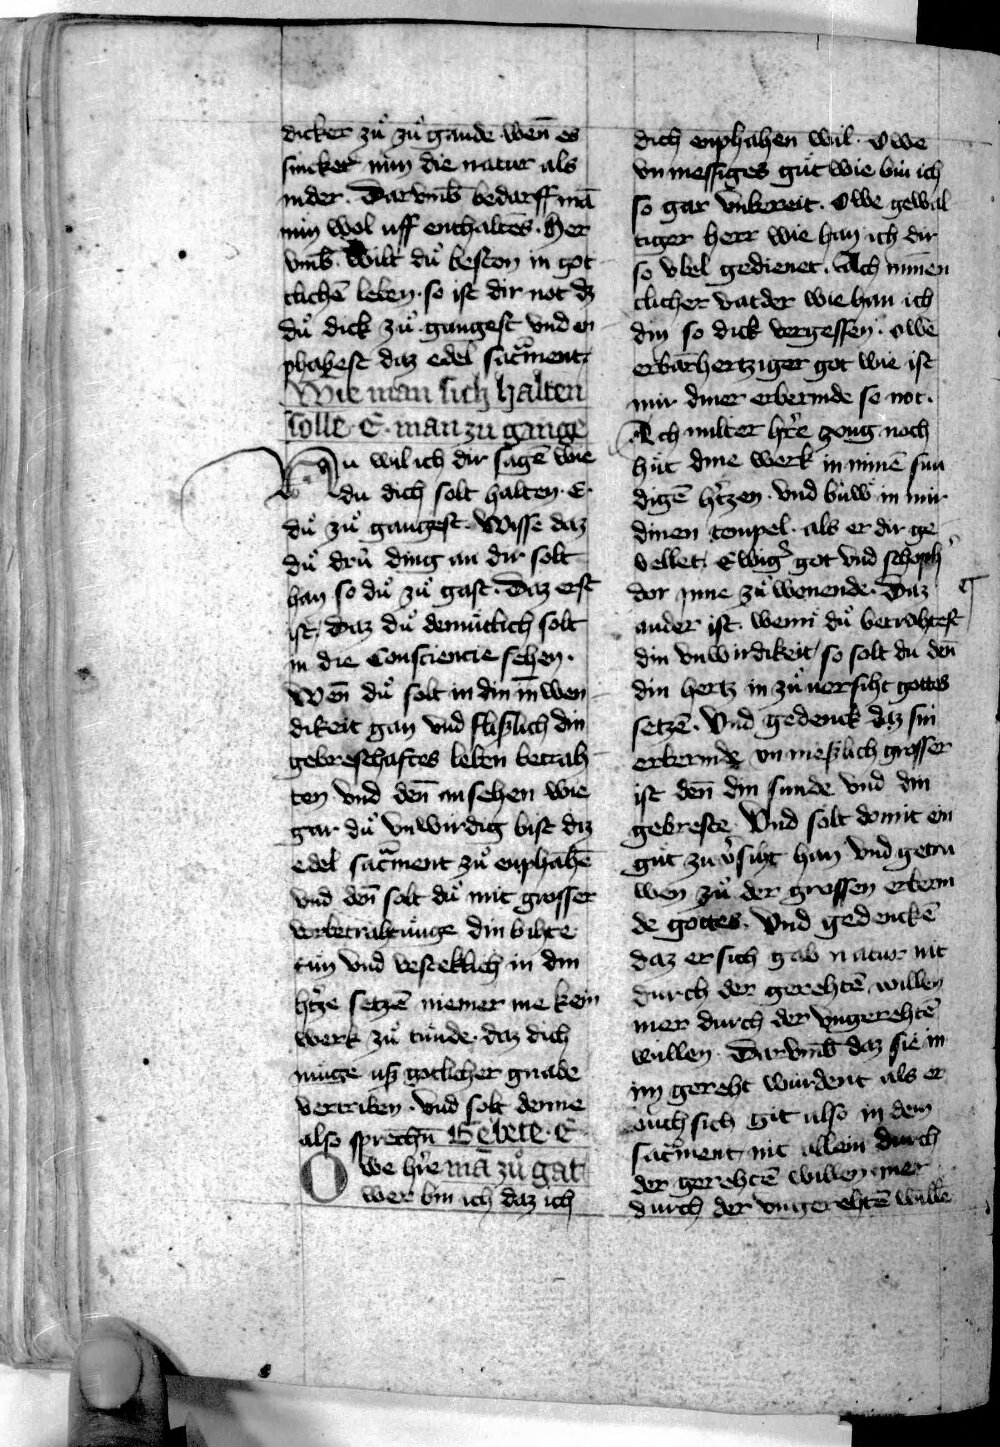 dicker zuͦ zuͦ gande wen̄ es
sincket min die natur als
nider. Darvmb̄ bedarff mā
min wol uff enthaltēs. Her
vmb̄. Wilt duͦ besten in got
tlichē leben. so ist dir not dz
duͦ dick zuͦ. gangest vnd en
phahest daz edel sac̄ment.
Wie man sich halten
solle. E. man zu gange
Nu wil ich dir sagē wie
du dich solt halten. E.
duͦ zuͦ gangest. Wisse daz
duͦ drü ding an dir solt
han so duͦ zuͦ gast. Daz erst
ist, Daz duͦ demütlich solt
in die Consciencie sehen.
Wen̄ duͦ solt in din in wen
dikeit gan vnd flislich din
gebreschaftes leben betrah
ten vnd den̄ an sehen wie
gar duͦ vnwirdig bist diz
edel sac̄ment zuͦ enphahē
vnd den̄ solt duͦ mit grosser
vorbetrahtunge din bihte
tun vnd vesteklich in din
htze setzē niemer me kein
werk zuͦ tünde. daz dich
müge us gotlicher gnade
vertriben. vnd solt denne
also sprechn̄ Gebete. E
O we hre mā zuͦ gat
wer bin ich daz ich
dich enphahen wil. Owe
vnmessiges guͦt wie bin ich
so gar vnbereit. Owe gewal
tiger herr wie han ich dir
so vbel gedienet. Ach minen
clicher vatder wie han ich
din so dick vergessen. Owe
erbarhertziger got wie ist
mir diner erbermde so not.
Ach milter hre zeug noch
hüt dine werk in minē sun
digē htzen. vnd buw in mir
dinen tempel. als er dir ge
vellet. Ewig' got vnd schoph'
dor inne zuͦ wonende. Daz
ander ist. wenn duͦ betrahtest
din vnwirdikeit so solt du den̄
din hertz in zuͦ versiht gottes
setzē. Vnd gedenck daz sin
erbermde vnmeslich grosser
ist den̄ din sunde vnd din
gebreste. Vnd solt domit ein
guͦt zu v'siht han vnd getru
wen zuͦ der grossen erberm
de gottes. Vnd gedenckē
daz er sich gab natur nit
durch der gerehtē willen
mer durch der vngerehtē
willen. Darvmb̄ daz sie in
im gereht würdent als er
ouch sich git also in dem
sac̄ment, nit allein durch
der gerehtē willen mer
durch der vngerehtē wille